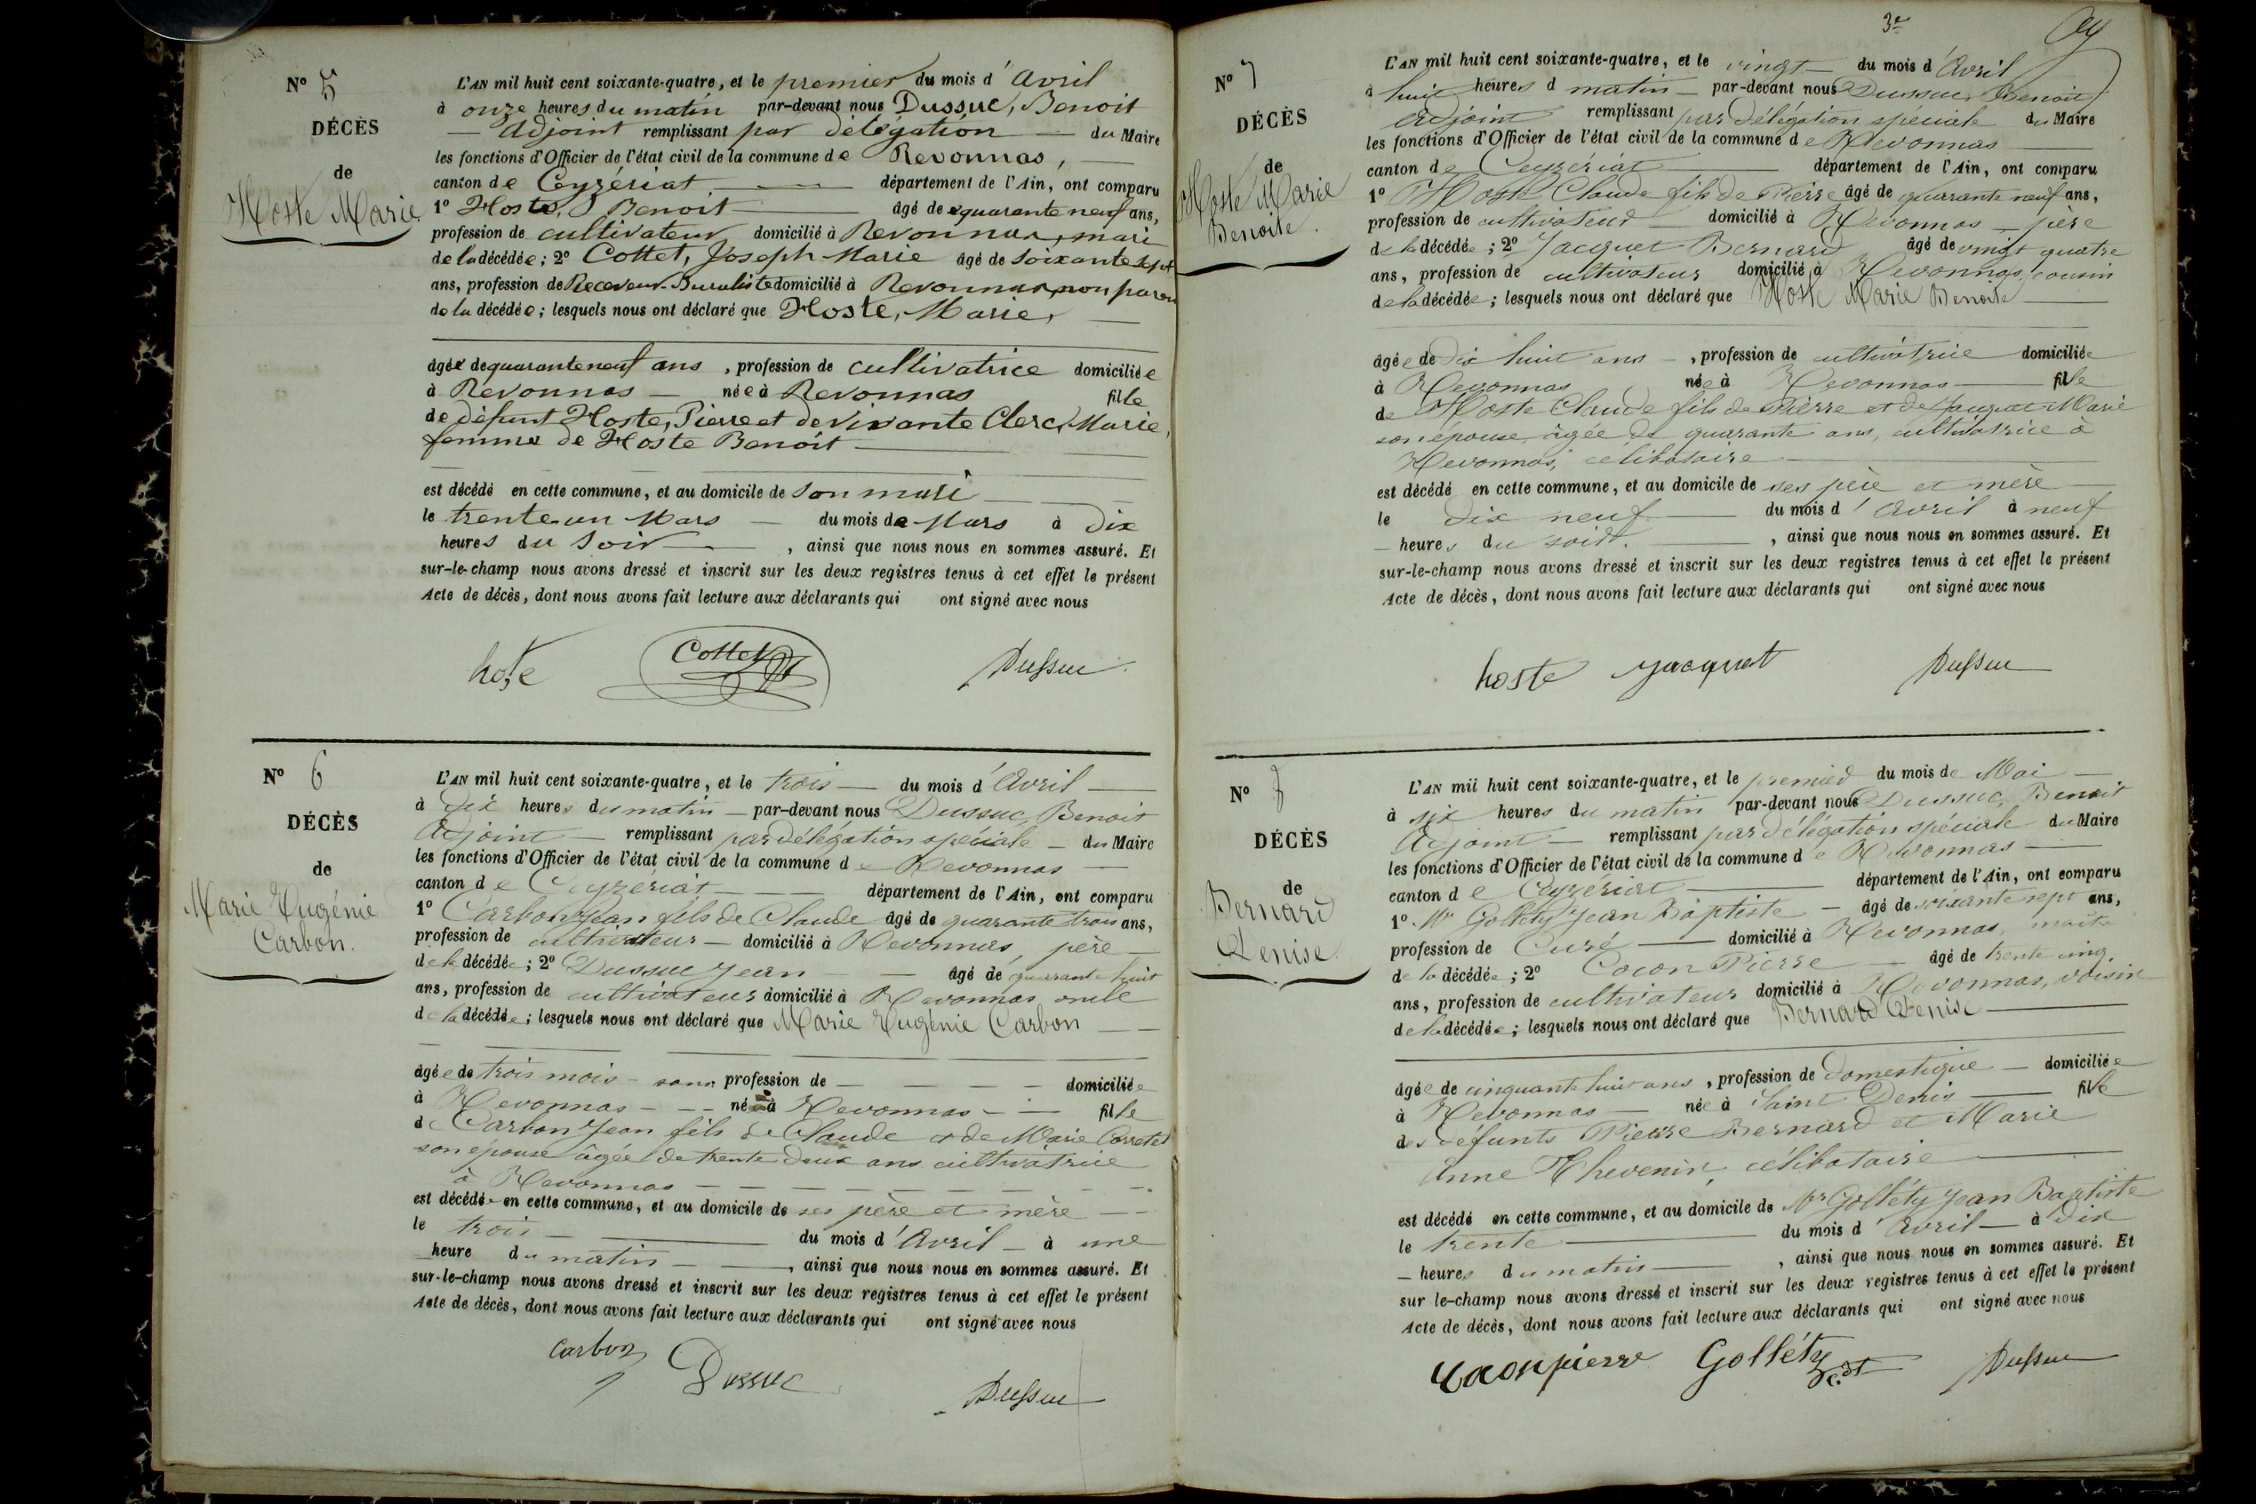 N° 5
DÉCÈS
de
Hoste Marie
L'AN mil huit cent soixante-quatre, et le premier du mois d'Avril
à onze heures du matin par-devant nous Dussuc, Benoit
Adjoint remplissant par délégation du Maire
les fonctions d'Officier de l'état civil de la commune de Revonnas,
canton de Ceyzériat département de l'Ain, ont comparu
1° Hoste, Benoit âgé de quarante neuf ans,
profession de cultivateur domicilié à Revonnas, mari
de la décédée; 2° Cottet, Joseph Marie âgé de soixante sept
ans, profession de Receveur-Buraliste domicilié à Revonnas, non paren
de la décédée; lesquels nous ont déclaré que Hoste, Marie,
âgée de quarante neuf ans, profession de cultivatrice domiciliée
à Revonnas née à Revonnas fille
de défunt Hoste, Pierre et de vivante Clerc, Marie,
femme de Hoste Benoit
est décédé en cette commune, et au domicile de son mari
le trente-un Mars du mois de Mars à dix
heures du Soir, ainsi que nous nous en sommes assuré. Et
sur-le-champ nous avons dressé et inscrit sur les deux registres tenus à cet effet le présent
Acte de décès, dont nous avons fait lecture aux déclarants qui ont signé avec nous
hoste Cottet Dussuc
N° 6
DÉCÈS
de
Marie Eugénie
Carbon.
L'AN mil huit cent soixante-quatre, et le trois du mois d'Avril
à dix heures du matin par-devant nous Dussuc, Benoit
Adjoint remplissant par délégation spéciale du Maire
les fonctions d'Officier de l'état civil de la commune de Revonnas
canton de Ceyzériat département de l'Ain, ont comparu
1° Carbon Jean fils de Claude âgé de quarante trois ans,
profession de cultivateur domicilié à Revonnas père
de la décédée; 2° Dussuc Jean âgé de quarante huit
ans, profession de cultivateur domicilié à Revonnas oncle
de la décédée; lesquels nous ont déclaré que Marie Eugénie Carbon
âgée de trois mois sans profession de domiciliée
à Revonnas née à Revonnas fille
de Carbon Jean fils de Claude et de Marie Corretel
son épouse âgée de trente deux ans cultivatrice
à Revonnas
est décédé en cette commune, et au domicile de ses père et mère
le trois du mois d'Avril à une
heure du matin, ainsi que nous nous en sommes assuré. Et
sur-le-champ nous avons dressé et inscrit sur les deux registres tenus à cet effet le présent
Acte de décès, dont nous avons fait lecture aux déclarants qui ont signé avec nous
Carbon Dussuc Dussuc
3e
N° 7
DÉCÈS
de
Hoste Marie
Benoite.
L'AN mil huit cent soixante-quatre, et le vingt du mois d'Avril
à huit heures d matin par-devant nous Dussuc, Benoit
Adjoint remplissant par délégation spéciale du Maire
les fonctions d'Officier de l'état civil de la commune de Revonnas
canton de Ceyzériat département de l'Ain, ont comparu
1° Hoste Claude fils de Pierre âgé de quarante neuf ans,
profession de cultivateur domicilié à Revonnas père
de la décédée; 2° Jacquet Bernard âgé de vingt quatre
ans, profession de cultivateur domicilié à Revonnas, cousin
de la décédée; lesquels nous ont déclaré que Hoste Marie Benoite
âgée de dix huit ans, profession de cultivatrice domiciliée
à Revonnas née à Revonnas fille
de Hoste Claude fils de Pierre et de Jacquet Marie
son épouse âgée de quarante ans, cultivatrice à
Revonnas, célibataire
est décédé en cette commune, et au domicile de ses père et mère
le dix neuf du mois d'Avril à neuf
heures du soir, ainsi que nous nous en sommes assuré. Et
sur-le-champ nous avons dressé et inscrit sur les deux registres tenus à cet effet le présent
Acte de décès, dont nous avons fait lecture aux déclarants qui ont signé avec nous
hoste jacquet Dussuc
N° 8
DÉCÈS
de
Bernard
Denise.
L'AN mil huit cent soixante-quatre, et le premier du mois de Mai
à six heures du matin par-devant nous Dussuc, Benoit
Adjoint remplissant par délégation spéciale du Maire
les fonctions d'Officier de l'état civil de la commune de Revonnas
canton de Ceyzeriat département de l'Ain, ont comparu
1° Mr Golléty Jean Baptiste âgé de soixante sept ans,
profession de Curé domicilié à Revonnas, maître
de la décédée; 2° Cocon Pierre âgé de trente cinq
ans, profession de cultivateur domicilié à Revonnas, voisin
de la décédée; lesquels nous ont déclaré que Bernard Denise
âgée de cinquante huit ans, profession de domestique domiciliée
à Revonnas née à Saint Denis fille
des défunts Pierre Bernard et Marie
Anne Thevenin, célibataire
est décédé en cette commune, et au domicile de Mr Golléty Jean Baptiste
le trente du mois d'Avril à dix
heures du matin, ainsi que nous nous en sommes assuré. Et
sur le-champ nous avons dressé et inscrit sur les deux registres tenus à cet effet le présent
Acte de décès, dont nous avons fait lecture aux déclarants qui ont signé avec nous
Cocon pierre Golléty Dussuc